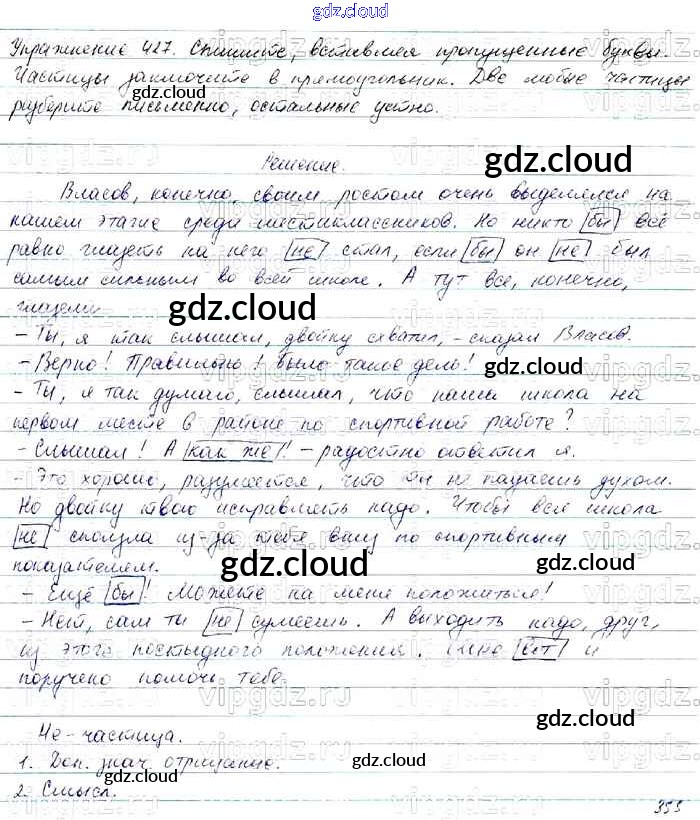 gdz.cloud
Упражнение 427. Спишите, вставляя пропущенные буквы.
Частицы заключите в прямоугольник. Две любые частицы
gdz.cloud gdz.cloud
разберите письменно, остальные устно.
Решение.
gdz.cloud
Власов, конечно, своим ростом очень выделялся на
нашем этаже среди шестиклассников. Но никто бы всё
равно глазеть на него не стал, если бы он не был
самым сильным во всей школе. А тут все, конечно,
глазели.
gdz.cloud
- Ты, я так слышал, двойку схватил, - сказал Власов.
- Верно! Правильно! Было такое дело!
gdz.cloud
- Ты, я так думаю, слышал, что наша школа на
первом месте в районе по спортивной работе?
- Слышал! А как же! - радостно ответил я.
- Это хорошо, разумеется, что ты не падаешь духом.
gdz.cloud
Но двойку твою исправлять надо. Чтобы вся школа
не сползла из-за тебя вниз по спортивным
показателям.
gdz.cloud
- Ещё бы! Можете на меня положиться!
- Нет, сам ты не сумеешь. А выходить надо, друг,
из этого постыдного положения. Мне вот и
поручено помочь тебе.
gdz.cloud
Не - частица.
1. Доп. знач. отрицание.
gdz.cloud gdz.cloud
2. Смысл.
353